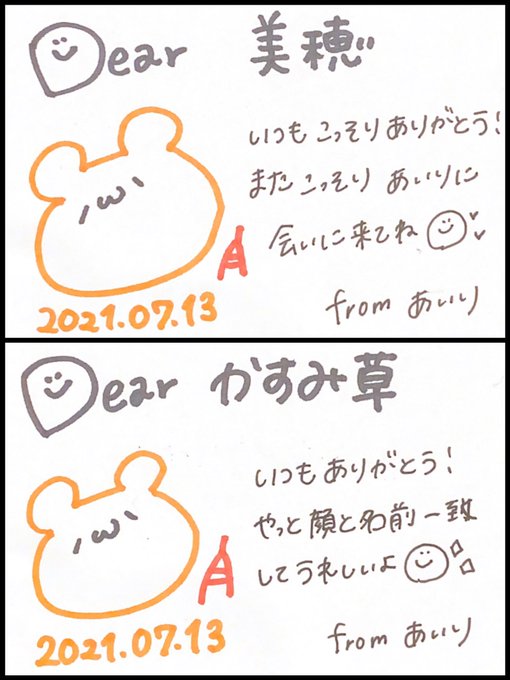 Dear 美穂
いつも こっそり ありがとう!
また こっそり あいりに
会いに来てね
2021.07.13
from あいり
Dear かすみ草
いつも ありがとう!
やっと 顔と名前一致
してうれしいよ
2021.07.13
from あいり